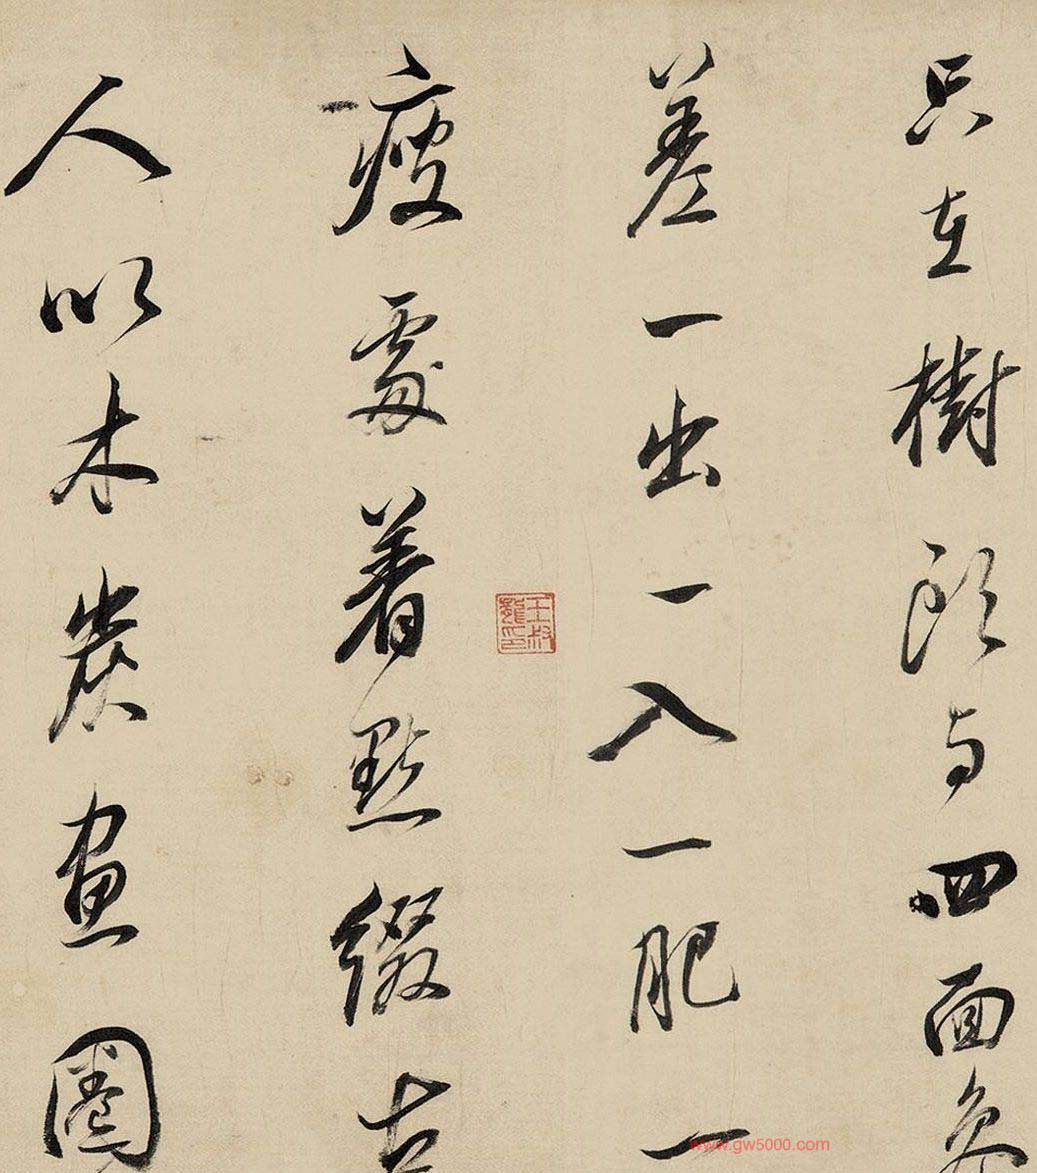 只在樹頭與四面叅
差一出一入一肥一
瘦處着點綴古
人以木炭畫圈
王叔
www.gw5000.com